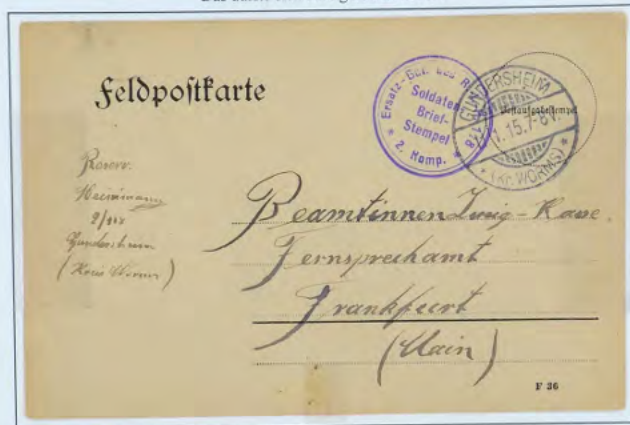 Feldpostkarte
Ersatz-Bat. des R.
118
Soldaten
Brief-
Stempel
* 2. Komp. *
GUNDERSHEIM
Postaufgabestempel
1.15.7-8
* (Kr. WORMS) *
Reserv.
2/118
Gundersheim
(Kreis Worms)
Beamtinnen Zweig-Kasse
Fernsprechamt
Frankfurt
(Main)
F 36